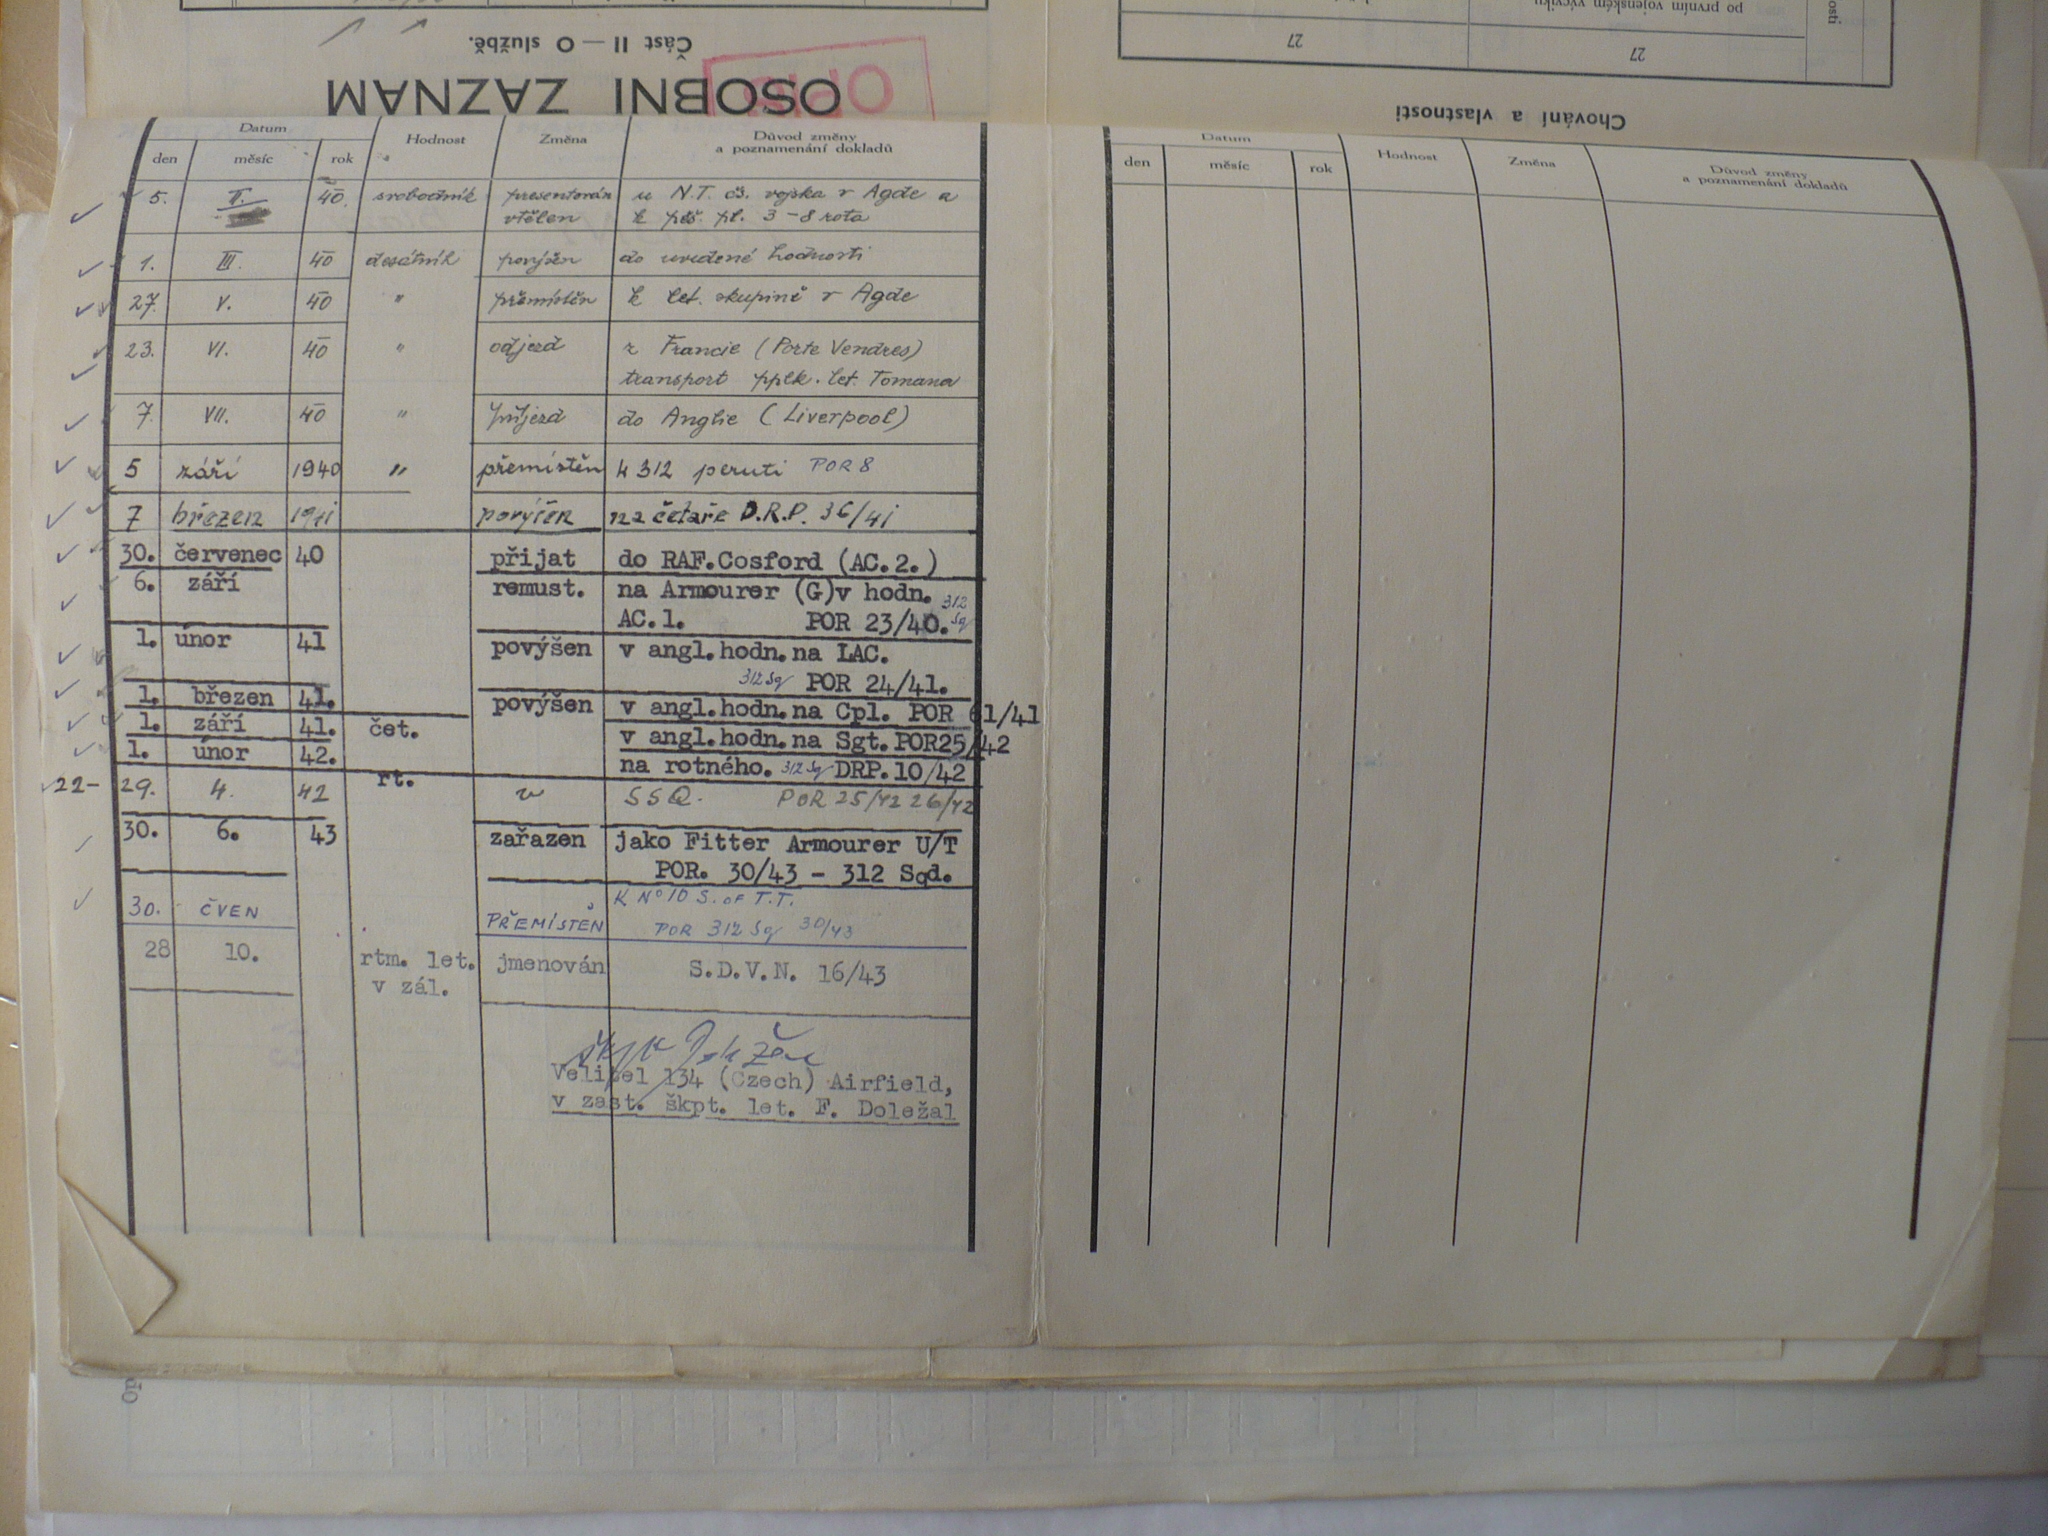 po prvním vojenském výcviku
27
27
Chování a vlastnosti
Část II — O službě.
OSOBNI ZAZNAM
Datum Hodnost Změna Důvod změny
a poznamenání dokladů
den měsíc rok
5. II. 40. svobodník presentován u N.T. čs. vojska v Agde a
vtělen k pěš. pl. 3 - 8 rota
1. III. 40 desátník povýšen do uvedené hodnosti
27. V. 40 " přemístěn k let. skupině v Agde
23. VI. 40 " odjezd z Francie (Porte Vendres)
transport pplk. let. Tomana
7. VII. 40 " příjezd do Anglie (Liverpool)
5 září 1940 " přemístěn k 312 peruti POR 8
7 březen 1941 povýšen na četaře D.R.P. 36/41
30. červenec 40 přijat do RAF.Cosford (AC.2.)
6. září remust. na Armourer (G)v hodn. 312
AC.1. POR 23/40. Sq
1. únor 41 povýšen v angl.hodn.na LAC.
312 Sq POR 24/41.
1. březen 41. povýšen v angl.hodn.na Cpl. POR 61/41
1. září 41. čet. v angl.hodn.na Sgt.POR25/42
1. únor 42. na rotného. 312 Sq DRP.10/42
22- 29. 4. 42 rt. v SSQ. POR 25/42 26/42
30. 6. 43 zařazen jako Fitter Armourer U/T
POR. 30/43 - 312 Sqd.
30. ČVEN PŘEMÍSTĚN K No 10 S. OF T.T.
POR 312 Sq 30/43
28 10. rtm. let. jmenován S.D.V.N. 16/43
v zál.
Velitel 134 (Czech) Airfield,
v zast. škpt. let. F. Doležal
Datum Hodnost Změna Důvod změny
a poznamenání dokladů
den měsíc rok